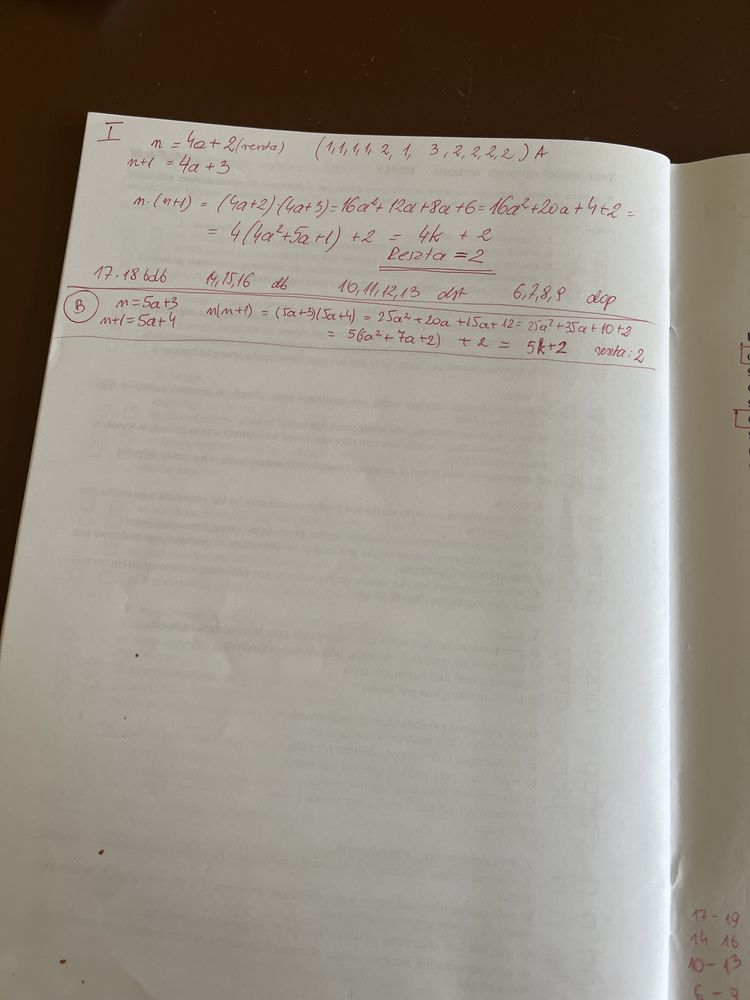 I
n = 4a + 2 (reszta) (1,1,1,1, 2, 1, 3, 2, 2, 2, 2) A
n+1 = 4a + 3
n·(n+1) = (4a+2)(4a+3) = 16a² + 12a + 8a + 6 = 16a² + 20a + 4 + 2 =
= 4(4a² + 5a + 1) + 2 = 4k + 2
Reszta = 2
17.18 bdb 14,15,16 db 10,11,12,13 dst 6,7,8,9 dop
B n = 5a+3 n(n+1) = (5a+3)(5a+4) = 25a² + 20a + 15a + 12 = 25a² + 35a + 10 + 2
n+1 = 5a+4 = 5(5a² + 7a + 2) + 2 = 5k+2 reszta: 2
17 - 19
14 16
10 - 13
6 - 9